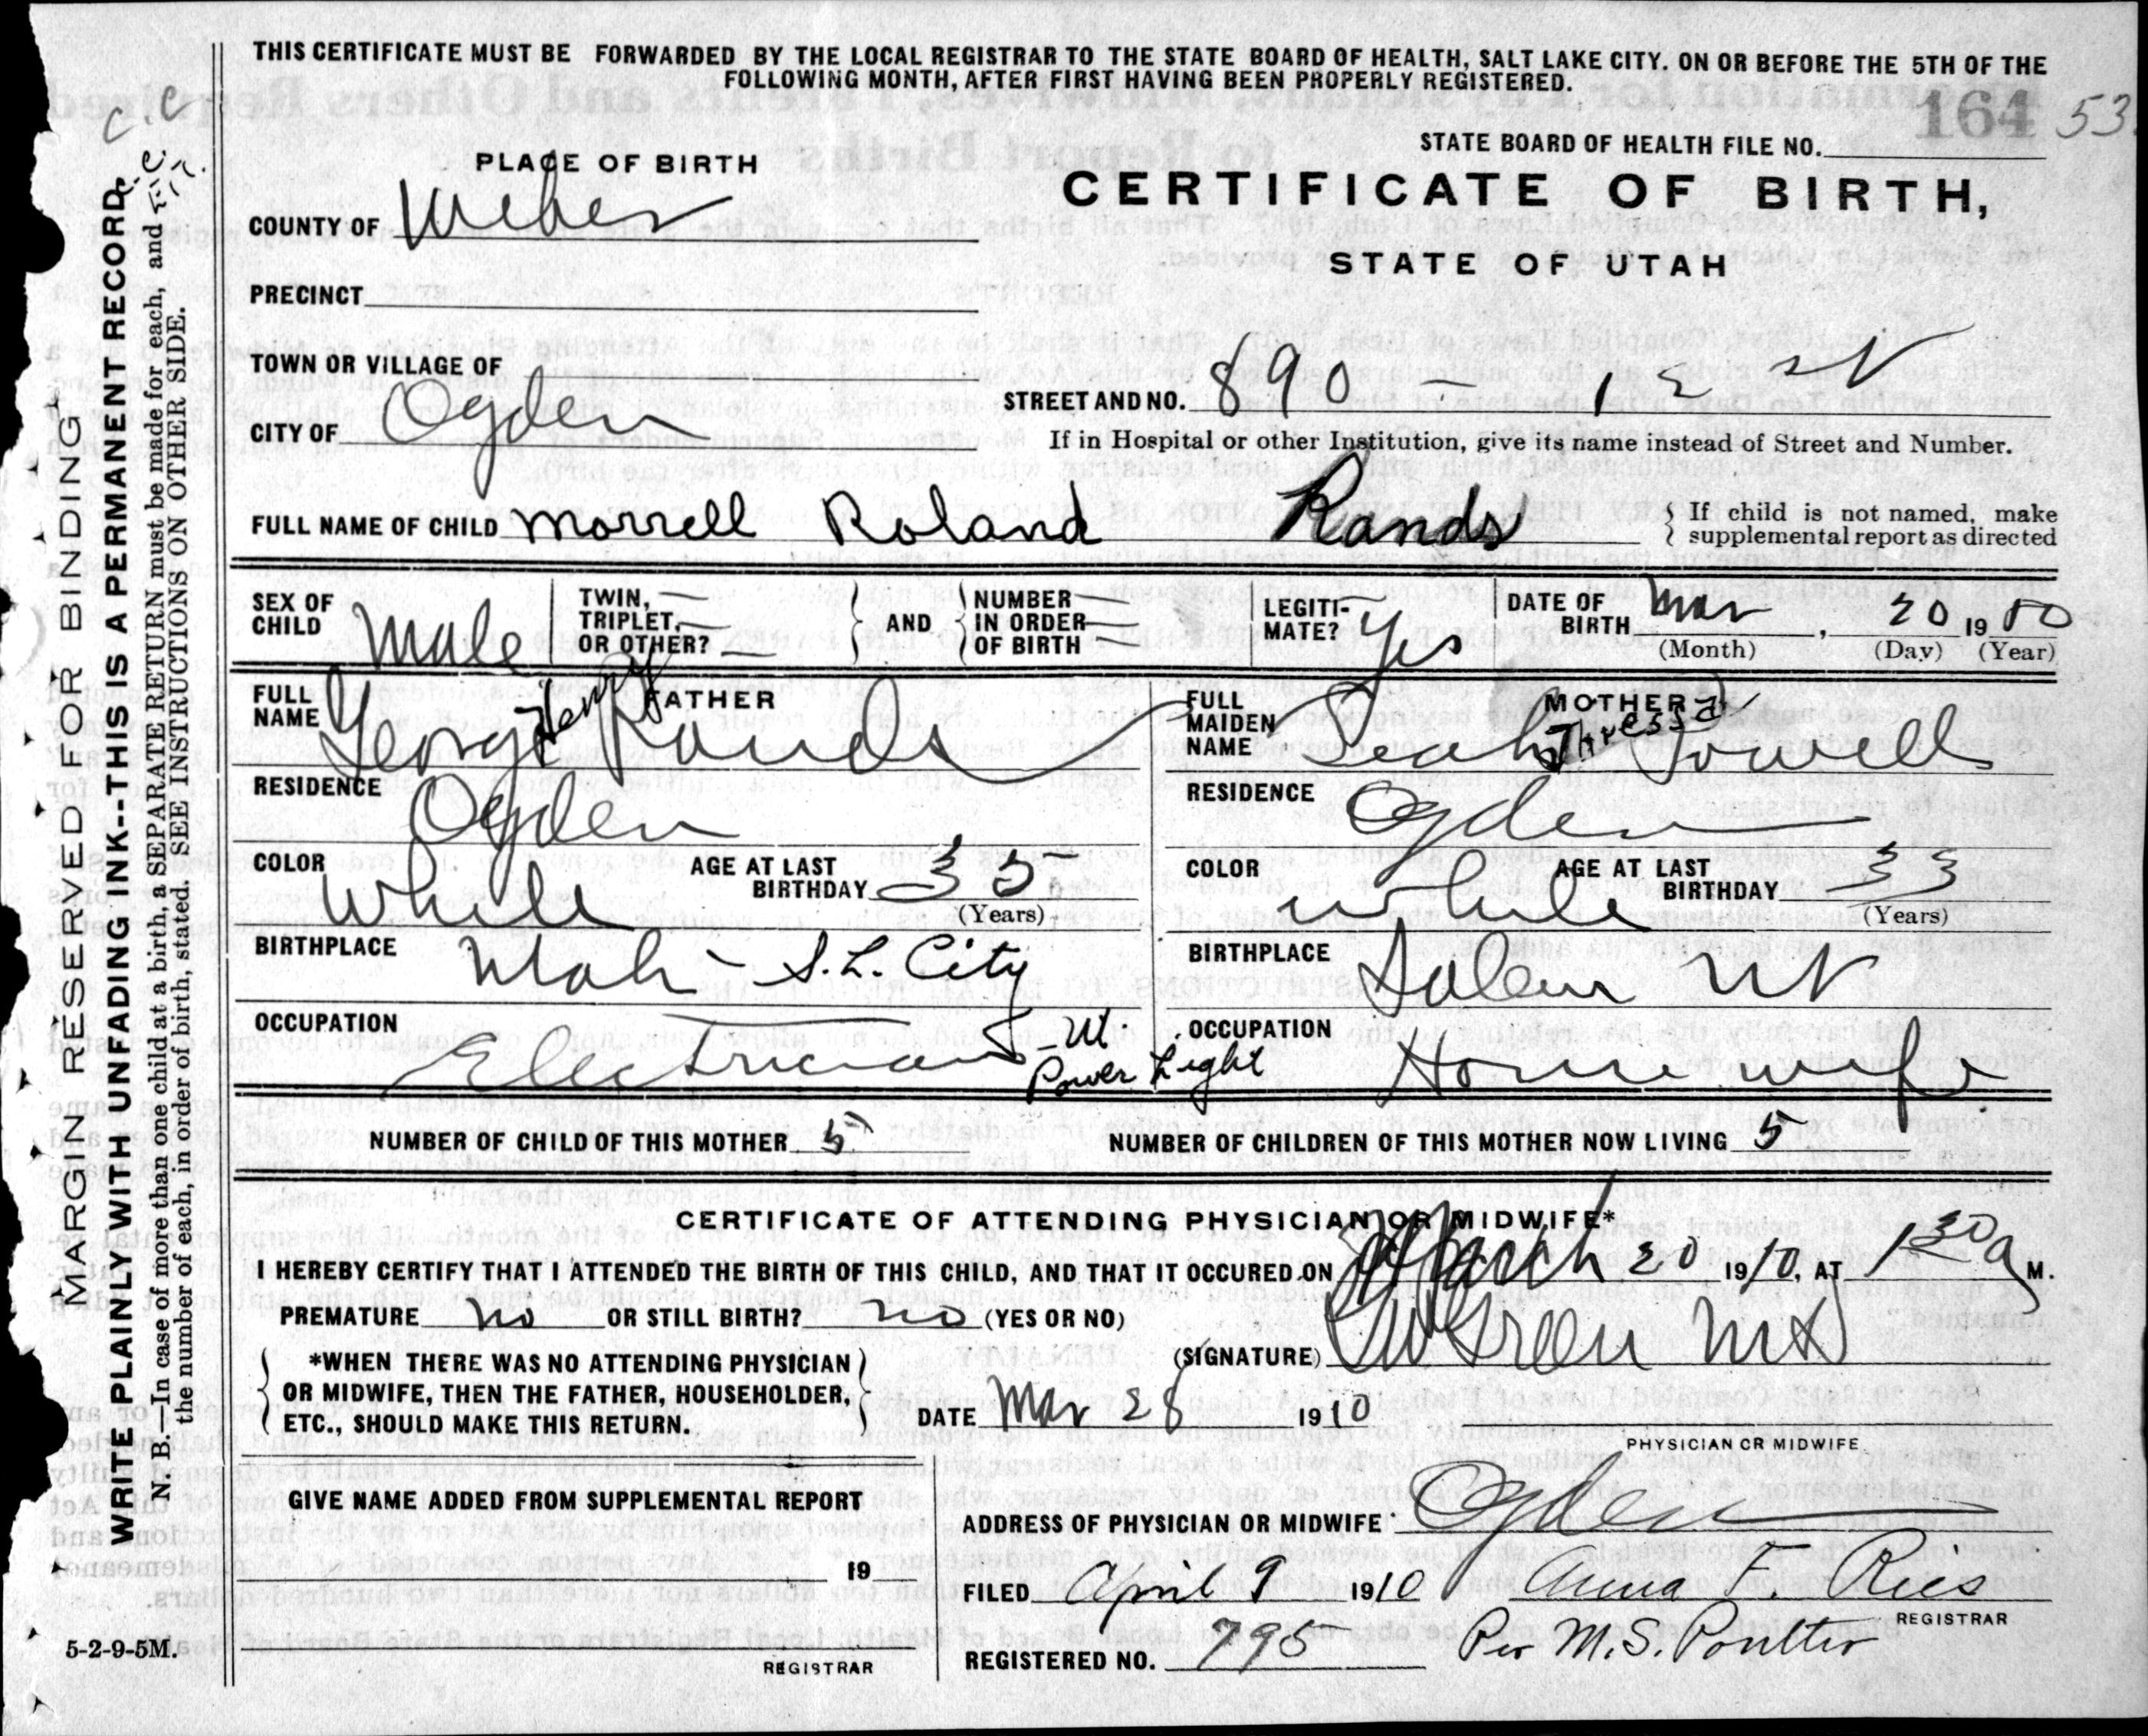 THIS CERTIFICATE MUST BE FORWARDED BY THE LOCAL REGISTRAR TO THE STATE BOARD OF HEALTH, SALT LAKE CITY. ON OR BEFORE THE 5TH OF THE
FOLLOWING MONTH, AFTER FIRST HAVING BEEN PROPERLY REGISTERED.
c.c
164 53.
STATE BOARD OF HEALTH FILE NO.
PLACE OF BIRTH
CERTIFICATE OF BIRTH,
COUNTY OF Weber
STATE OF UTAH
PRECINCT
TOWN OR VILLAGE OF
CITY OF Ogden
STREET AND NO. 890 - 12 St
If in Hospital or other Institution, give its name instead of Street and Number.
FULL NAME OF CHILD Morrell Roland Rands
If child is not named, make
supplemental report as directed
SEX OF CHILD Male
TWIN, TRIPLET, OR OTHER? —
AND
NUMBER IN ORDER OF BIRTH —
LEGITIMATE? Yes
DATE OF BIRTH Mar, 20 19
(Month) (Day) (Year)
FULL NAME FATHER
George Henry Rands
FULL MAIDEN NAME MOTHER
Leah Thressa Powell
RESIDENCE Ogden
RESIDENCE Ogden
COLOR White
AGE AT LAST BIRTHDAY
(Years)
COLOR White
AGE AT LAST BIRTHDAY 33
(Years)
BIRTHPLACE Utah - S.L. City
BIRTHPLACE Salem Ut
OCCUPATION Electrician - Ut. Power Light
OCCUPATION Housewife
NUMBER OF CHILD OF THIS MOTHER 5
NUMBER OF CHILDREN OF THIS MOTHER NOW LIVING 5
CERTIFICATE OF ATTENDING PHYSICIAN OR MIDWIFE*
I HEREBY CERTIFY THAT I ATTENDED THE BIRTH OF THIS CHILD, AND THAT IT OCCURED ON March 20 1910, AT 1 30 a M.
PREMATURE no OR STILL BIRTH? no (YES OR NO)
*WHEN THERE WAS NO ATTENDING PHYSICIAN
OR MIDWIFE, THEN THE FATHER, HOUSEHOLDER,
ETC., SHOULD MAKE THIS RETURN.
(SIGNATURE) Green MD
DATE Mar 28 1910
PHYSICIAN OR MIDWIFE
GIVE NAME ADDED FROM SUPPLEMENTAL REPORT
19
REGISTRAR
ADDRESS OF PHYSICIAN OR MIDWIFE Ogden
FILED April 9 1910 Anna F. Ries
REGISTRAR
REGISTERED NO. 795 Per M.S. Poulter
5-2-9-5M.
MARGIN RESERVED FOR BINDING
WRITE PLAINLY WITH UNFADING INK--THIS IS A PERMANENT RECORD.
N. B.—In case of more than one child at a birth, a SEPARATE RETURN must be made for each, and
the number of each, in order of birth, stated. SEE INSTRUCTIONS ON OTHER SIDE.